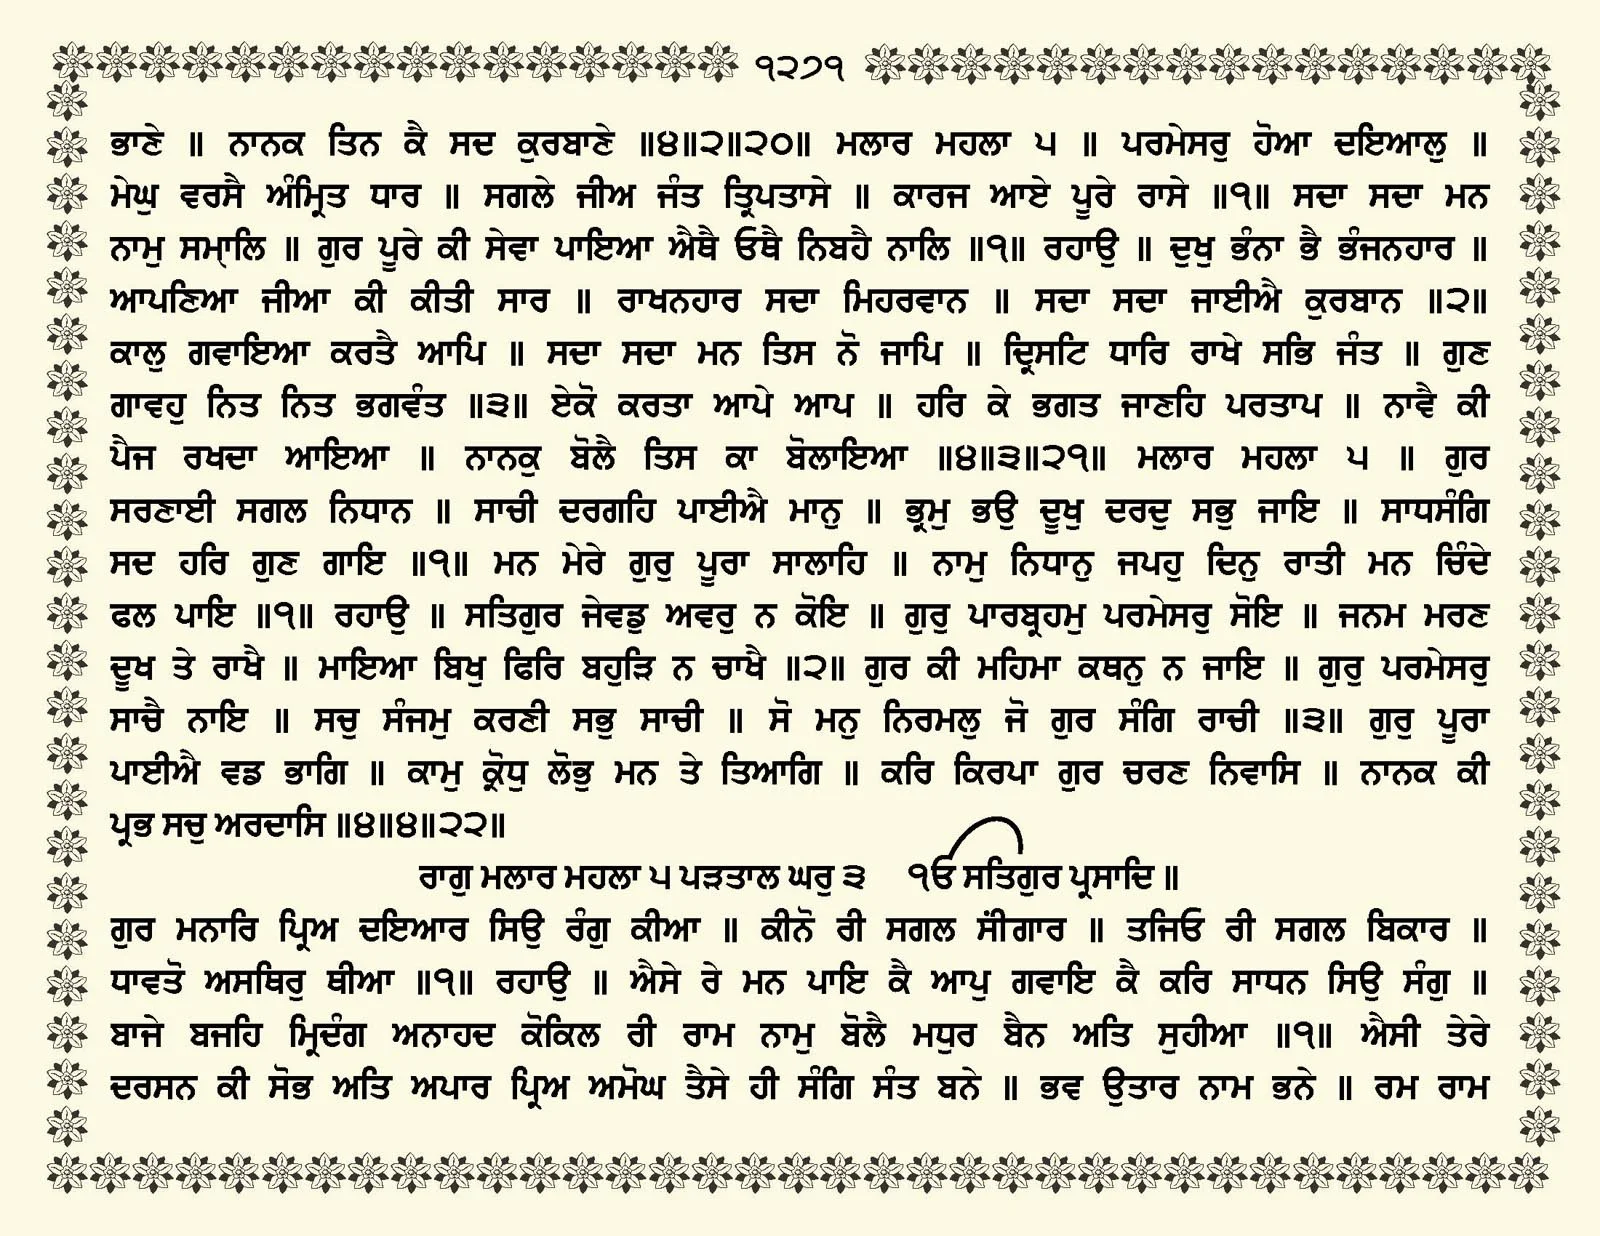 ੧੨੭੧
ਭਾਣੇ ॥ ਨਾਨਕ ਤਿਨ ਕੈ ਸਦ ਕੁਰਬਾਣੇ ॥੪॥੨॥੨੦॥ ਮਲਾਰ ਮਹਲਾ ੫ ॥ ਪਰਮੇਸਰੁ ਹੋਆ ਦਇਆਲੁ ॥
ਮੇਘੁ ਵਰਸੈ ਅੰਮ੍ਰਿਤ ਧਾਰ ॥ ਸਗਲੇ ਜੀਅ ਜੰਤ ਤ੍ਰਿਪਤਾਸੇ ॥ ਕਾਰਜ ਆਏ ਪੂਰੇ ਰਾਸੇ ॥੧॥ ਸਦਾ ਸਦਾ ਮਨ
ਨਾਮੁ ਸਮ੍ਹਾਲਿ ॥ ਗੁਰ ਪੂਰੇ ਕੀ ਸੇਵਾ ਪਾਇਆ ਐਥੈ ਓਥੈ ਨਿਬਹੈ ਨਾਲਿ ॥੧॥ ਰਹਾਉ ॥ ਦੁਖੁ ਭੰਨਾ ਭੈ ਭੰਜਨਹਾਰ ॥
ਆਪਣਿਆ ਜੀਆ ਕੀ ਕੀਤੀ ਸਾਰ ॥ ਰਾਖਨਹਾਰ ਸਦਾ ਮਿਹਰਵਾਨ ॥ ਸਦਾ ਸਦਾ ਜਾਈਐ ਕੁਰਬਾਨ ॥੨॥
ਕਾਲੁ ਗਵਾਇਆ ਕਰਤੈ ਆਪਿ ॥ ਸਦਾ ਸਦਾ ਮਨ ਤਿਸ ਨੋ ਜਾਪਿ ॥ ਦ੍ਰਿਸਟਿ ਧਾਰਿ ਰਾਖੇ ਸਭਿ ਜੰਤ ॥ ਗੁਣ
ਗਾਵਹੁ ਨਿਤ ਨਿਤ ਭਗਵੰਤ ॥੩॥ ਏਕੋ ਕਰਤਾ ਆਪੇ ਆਪ ॥ ਹਰਿ ਕੇ ਭਗਤ ਜਾਣਹਿ ਪਰਤਾਪ ॥ ਨਾਵੈ ਕੀ
ਪੈਜ ਰਖਦਾ ਆਇਆ ॥ ਨਾਨਕੁ ਬੋਲੈ ਤਿਸ ਕਾ ਬੋਲਾਇਆ ॥੪॥੩॥੨੧॥ ਮਲਾਰ ਮਹਲਾ ੫ ॥ ਗੁਰ
ਸਰਣਾਈ ਸਗਲ ਨਿਧਾਨ ॥ ਸਾਚੀ ਦਰਗਹਿ ਪਾਈਐ ਮਾਨੁ ॥ ਭ੍ਰਮੁ ਭਉ ਦੂਖੁ ਦਰਦੁ ਸਭੁ ਜਾਇ ॥ ਸਾਧਸੰਗਿ
ਸਦ ਹਰਿ ਗੁਣ ਗਾਇ ॥੧॥ ਮਨ ਮੇਰੇ ਗੁਰੁ ਪੂਰਾ ਸਾਲਾਹਿ ॥ ਨਾਮੁ ਨਿਧਾਨੁ ਜਪਹੁ ਦਿਨੁ ਰਾਤੀ ਮਨ ਚਿੰਦੇ
ਫਲ ਪਾਇ ॥੧॥ ਰਹਾਉ ॥ ਸਤਿਗੁਰ ਜੇਵਡੁ ਅਵਰੁ ਨ ਕੋਇ ॥ ਗੁਰੁ ਪਾਰਬ੍ਰਹਮੁ ਪਰਮੇਸਰੁ ਸੋਇ ॥ ਜਨਮ ਮਰਣ
ਦੂਖ ਤੇ ਰਾਖੈ ॥ ਮਾਇਆ ਬਿਖੁ ਫਿਰਿ ਬਹੁੜਿ ਨ ਚਾਖੈ ॥੨॥ ਗੁਰ ਕੀ ਮਹਿਮਾ ਕਥਨੁ ਨ ਜਾਇ ॥ ਗੁਰੁ ਪਰਮੇਸਰੁ
ਸਾਚੈ ਨਾਇ ॥ ਸਚੁ ਸੰਜਮੁ ਕਰਣੀ ਸਭੁ ਸਾਚੀ ॥ ਸੋ ਮਨੁ ਨਿਰਮਲੁ ਜੋ ਗੁਰ ਸੰਗਿ ਰਾਚੀ ॥੩॥ ਗੁਰੁ ਪੂਰਾ
ਪਾਈਐ ਵਡ ਭਾਗਿ ॥ ਕਾਮੁ ਕ੍ਰੋਧੁ ਲੋਭੁ ਮਨ ਤੇ ਤਿਆਗਿ ॥ ਕਰਿ ਕਿਰਪਾ ਗੁਰ ਚਰਣ ਨਿਵਾਸਿ ॥ ਨਾਨਕ ਕੀ
ਪ੍ਰਭ ਸਚੁ ਅਰਦਾਸਿ ॥੪॥੪॥੨੨॥
ਰਾਗੁ ਮਲਾਰ ਮਹਲਾ ੫ ਪੜਤਾਲ ਘਰੁ ੩ ੴ ਸਤਿਗੁਰ ਪ੍ਰਸਾਦਿ ॥
ਗੁਰ ਮਨਾਰਿ ਪ੍ਰਿਅ ਦਇਆਰ ਸਿਉ ਰੰਗੁ ਕੀਆ ॥ ਕੀਨੋ ਰੀ ਸਗਲ ਸੀਂਗਾਰ ॥ ਤਜਿਓ ਰੀ ਸਗਲ ਬਿਕਾਰ ॥
ਧਾਵਤੋ ਅਸਥਿਰੁ ਥੀਆ ॥੧॥ ਰਹਾਉ ॥ ਐਸੇ ਰੇ ਮਨ ਪਾਇ ਕੈ ਆਪੁ ਗਵਾਇ ਕੈ ਕਰਿ ਸਾਧਨ ਸਿਉ ਸੰਗੁ ॥
ਬਾਜੇ ਬਜਹਿ ਮ੍ਰਿਦੰਗ ਅਨਾਹਦ ਕੋਕਿਲ ਰੀ ਰਾਮ ਨਾਮੁ ਬੋਲੈ ਮਧੁਰ ਬੈਨ ਅਤਿ ਸੁਹੀਆ ॥੧॥ ਐਸੀ ਤੇਰੇ
ਦਰਸਨ ਕੀ ਸੋਭ ਅਤਿ ਅਪਾਰ ਪ੍ਰਿਅ ਅਮੋਘ ਤੈਸੇ ਹੀ ਸੰਗਿ ਸੰਤ ਬਨੇ ॥ ਭਵ ਉਤਾਰ ਨਾਮ ਭਨੇ ॥ ਰਮ ਰਾਮ